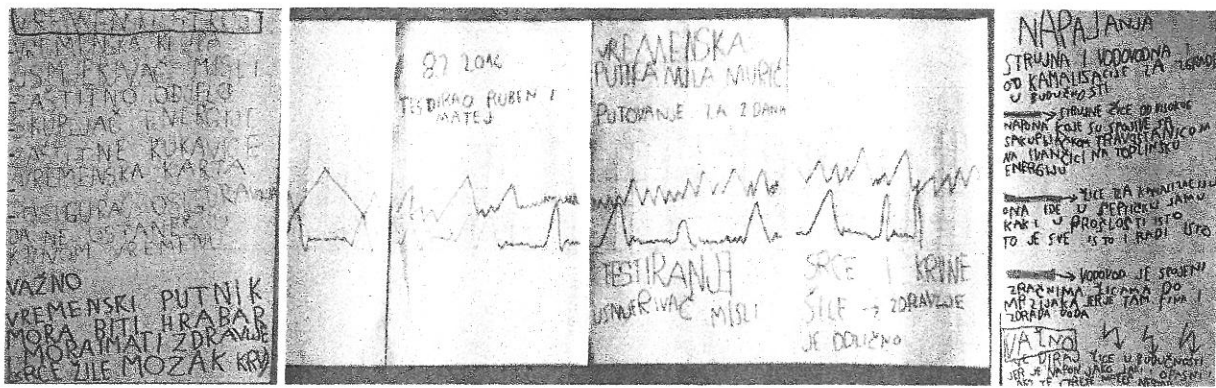 VREMENSKA KUPA
USMJERIVAČ MISLI
ZAŠTITNO ODJELO
SKUPLJAČ ENERGIJE
ZAŠTITNE RUKAVICE
VREMENSKA KARTA
DA NE OSTANEŠ U
KRIVOM VREMENU
VAŽNO
VREMENSKI PUTNIK
MORA BITI HRABAR
I MORA IMATI ZDRAVLJE
SRCE ŽILE MOZAK KRV
2016
TESTIRAO RUBEN I
MATEJ
VREMENSKA
PUTKA MILA
PUTOVANJE ZA 2 DANA
TESTIRANJE
USMJERIVAČ MISLI
SRCE I KRVNE
ŽILE → ZDRAVLJE
JE ODLIČNO
NAPAJANJA
STRUJNA I VODOVODNA I
OD KANALISACIJE ZA ZGRADE
U BUDUČNOSTI
→ STRUJNE ŽICE OD VISOKOG
NAPONA KOJE SU SPOJNE SA
SAKUPLJAČKOM TRAFOSTANICOM
NA IVANČICI NA TOPLINSKU
ENERGIJU
→ ŽICE ZA KANALIZACIJU
ONA IDE U SEPTIČKU JAMU
KAK I U PROSLOSTI ISTO
TO JE SVE ISTO I RADI ISTO
→ VODOVOD JE SPOJENI
ZRAČNIMA ŽICAMA DO
JER JE TAM FINA I
ZDRAVA VODA
VAŽNO
NE DIRAJ ŽICE U BUDUČNOSTI
JER JE NAPON JAKO JAK I OPASNI